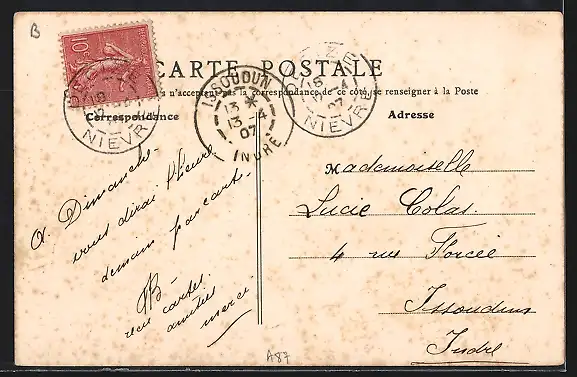 B
CARTE POSTALE
n'acceptent pas la correspondance de ce côté, se renseigner à la Poste
Correspondance
Adresse
10
NIEVRE
ISSOUDUN
13
13 -4
07
INDRE
NIEVRE
A Dimanche.
vous dirai l'heure
demain par carte.
B
reçu cartes.
amitiés
merci
Mademoiselle
Lucie Colas.
4 rue
Issoudun
Indre
A87